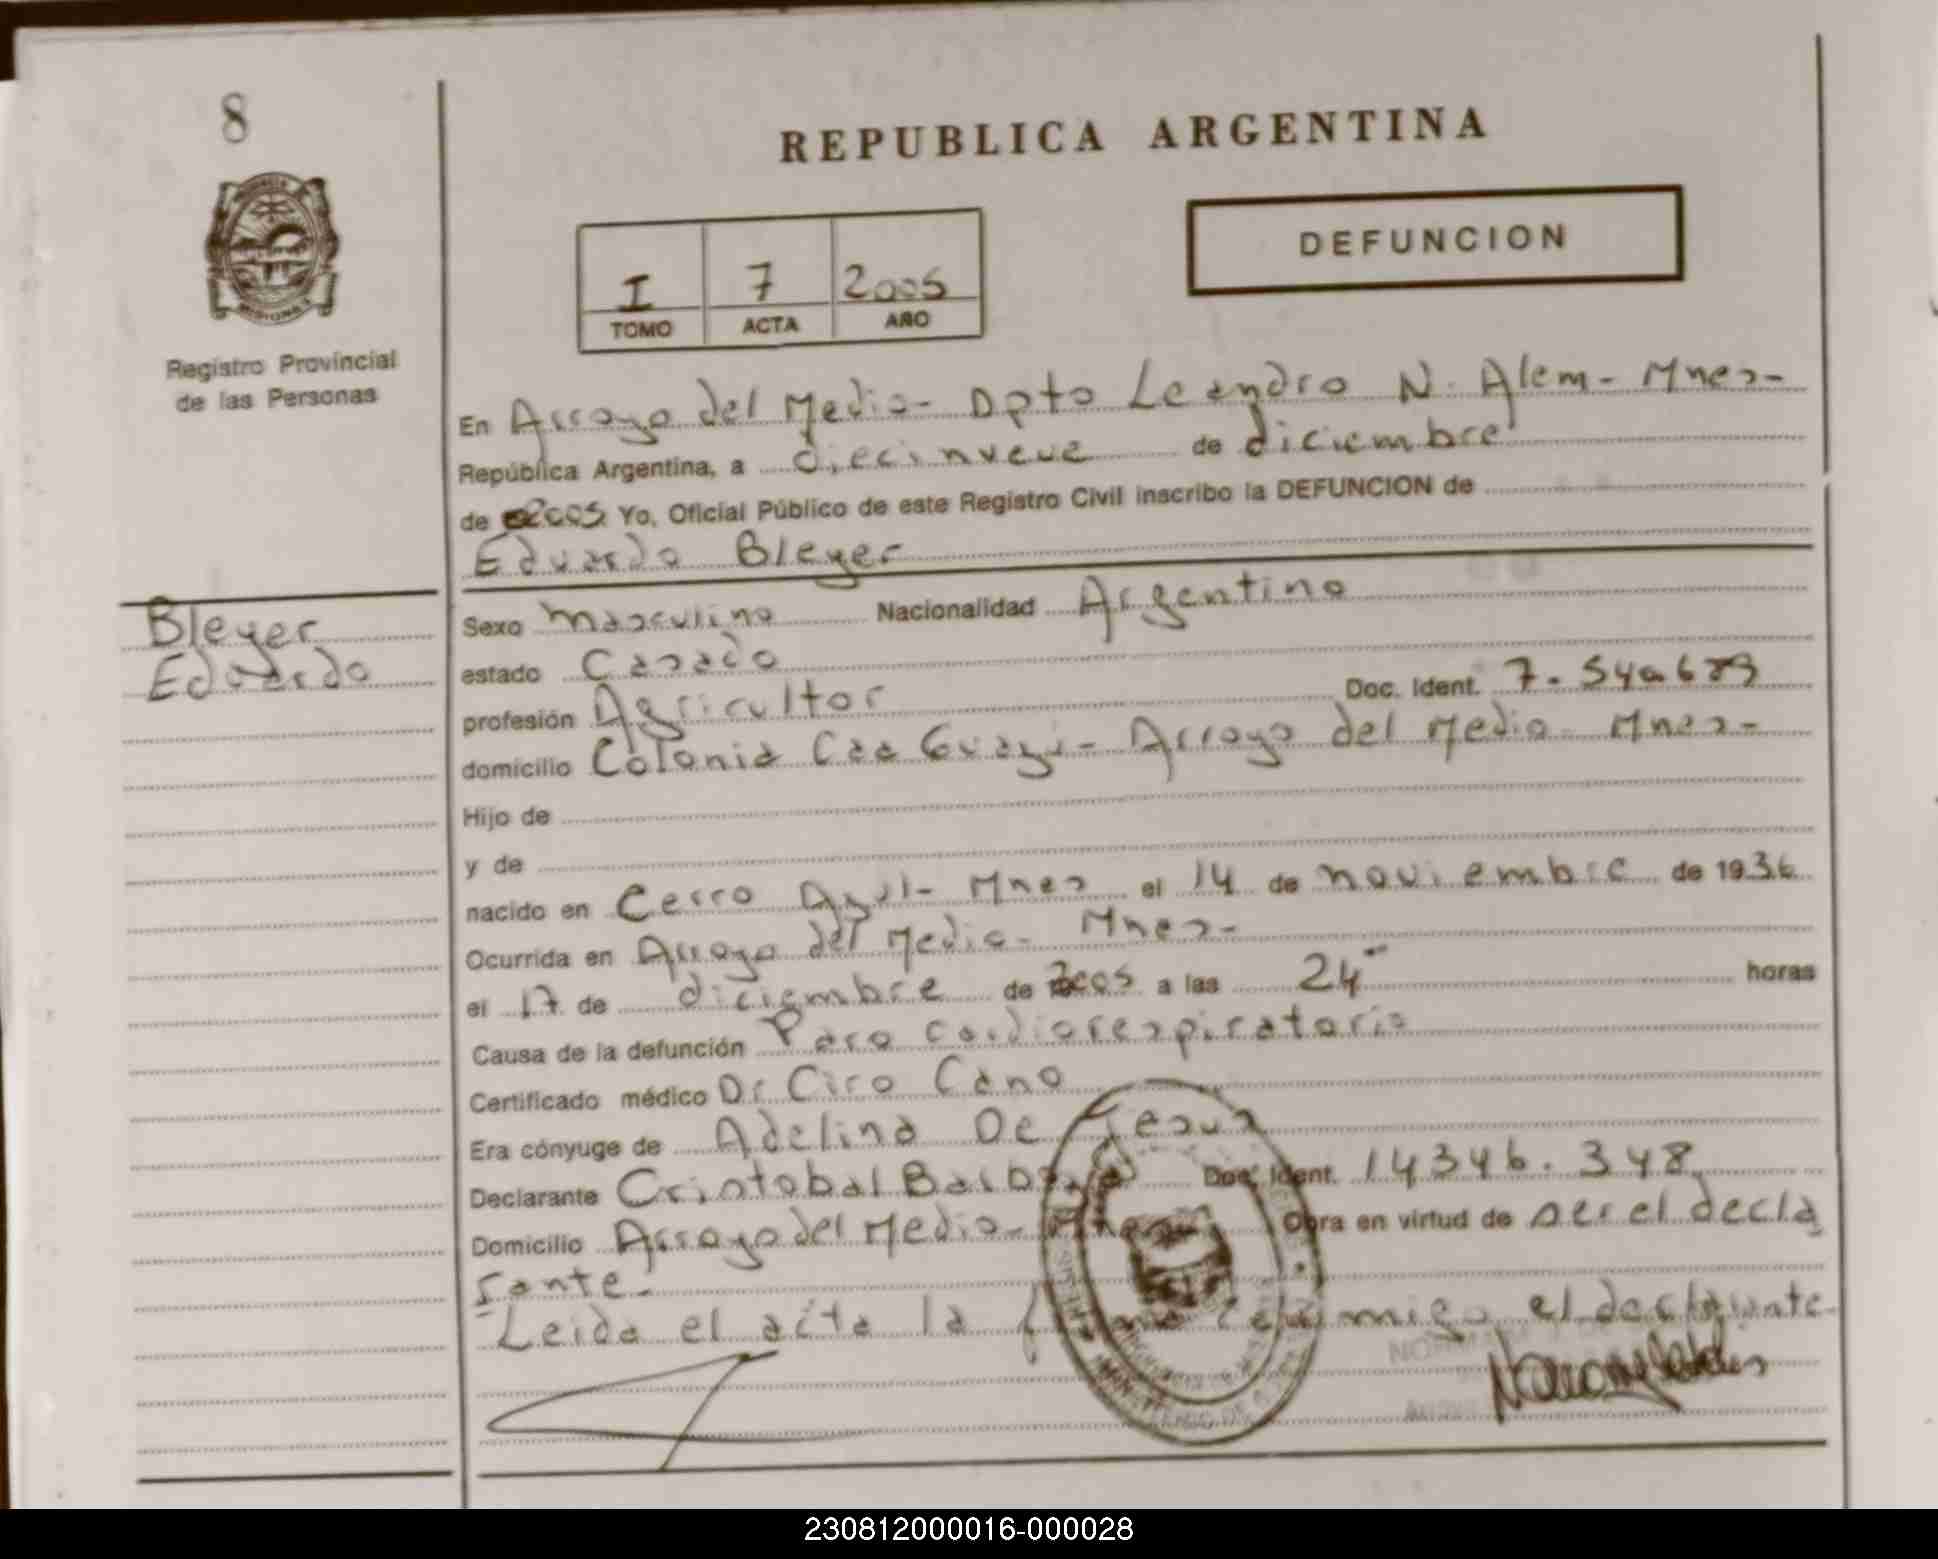 8
REPUBLICA ARGENTINA
DEFUNCION
I 7 2005
TOMO ACTA AÑO
Registro Provincial
de las Personas
En Arroyo del Medio - Dpto Leandro N. Alem - Mnes -
República Argentina, a diecinueve de diciembre
de 2005 Yo, Oficial Público de este Registro Civil inscribo la DEFUNCION de
Eduardo Bleyer
Bleyer
Eduardo
Sexo masculino Nacionalidad Argentino
estado Casado
profesión Agricultor Doc. Ident.
domicilio Colonia Caa Guazú - Arroyo del Medio - Mnes -
Hijo de
y de
nacido en Cerro Azul - Mnes el 14 de noviembre de 1936
Ocurrida en Arroyo del Medio - Mnes -
el 17 de diciembre de 2005 a las 24 horas
Causa de la defunción Paro cardiorespiratorio
Certificado médico Dr Ciro Cano
Era cónyuge de Adelina De Jesus
Declarante Cristobal Doc. Ident. 14346.348
Domicilio Arroyo del Medio - Mnes Obra en virtud de ser el decla
rante -
Leida el acta la firma conmigo el declarante -
230812000016-000028